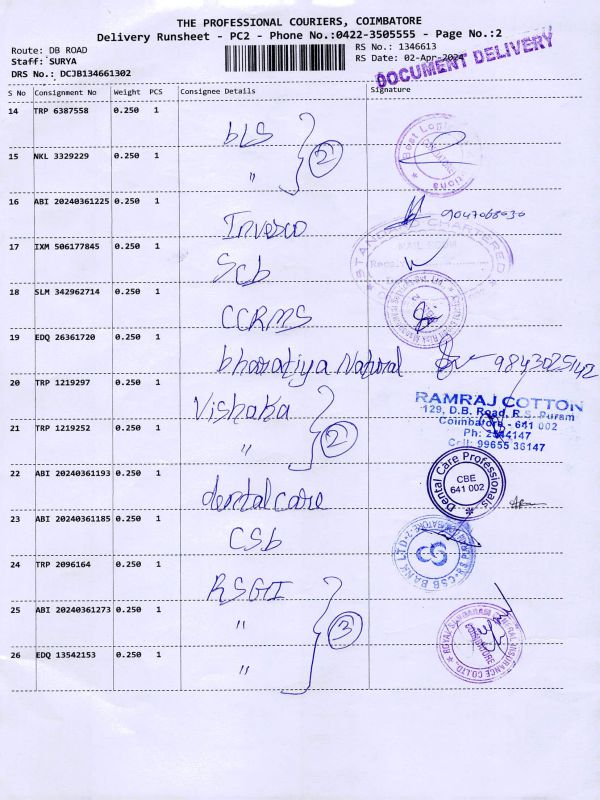 THE PROFESSIONAL COURIERS, COIMBATORE
Delivery Runsheet - PC2 - Phone No.:0422-3505555 - Page No.:2
Route: DB ROAD
Staff: SURYA
DRS No.: DCJB134661302
RS No.: 1346613
RS Date: 02-Apr-2024
DOCUMENT DELIVERY
S No Consignment No Weight PCS Consignee Details Signature
14 TRP 6387558 0.250 1 bLS
15 NKL 3329229 0.250 1 " 2
16 ABI 20240361225 0.250 1 Invesco 9047068030
17 IXM 506177845 0.250 1 Scb
STANDARD CHARTERED
18 SLM 342962714 0.250 1 CCRMS
19 EDQ 26361720 0.250 1 bharatiya Natural 9843025142
20 TRP 1219297 0.250 1 Vishaka
RAMRAJ COTTON
129, D.B. Road, R.S. Puram
Coimbatore - 641 002
Cell: 99655 36147
21 TRP 1219252 0.250 1 " 2
22 ABI 20240361193 0.250 1 dental care
Dental Care Professionals
CBE
641 002
23 ABI 20240361185 0.250 1 CSb
CSB BANK LTD
24 TRP 2096164 0.250 1 RSGI
25 ABI 20240361273 0.250 1 " 3
ROYAL SUNDARAM GENERAL INSURANCE CO.LTD.
26 EDQ 13542153 0.250 1 "